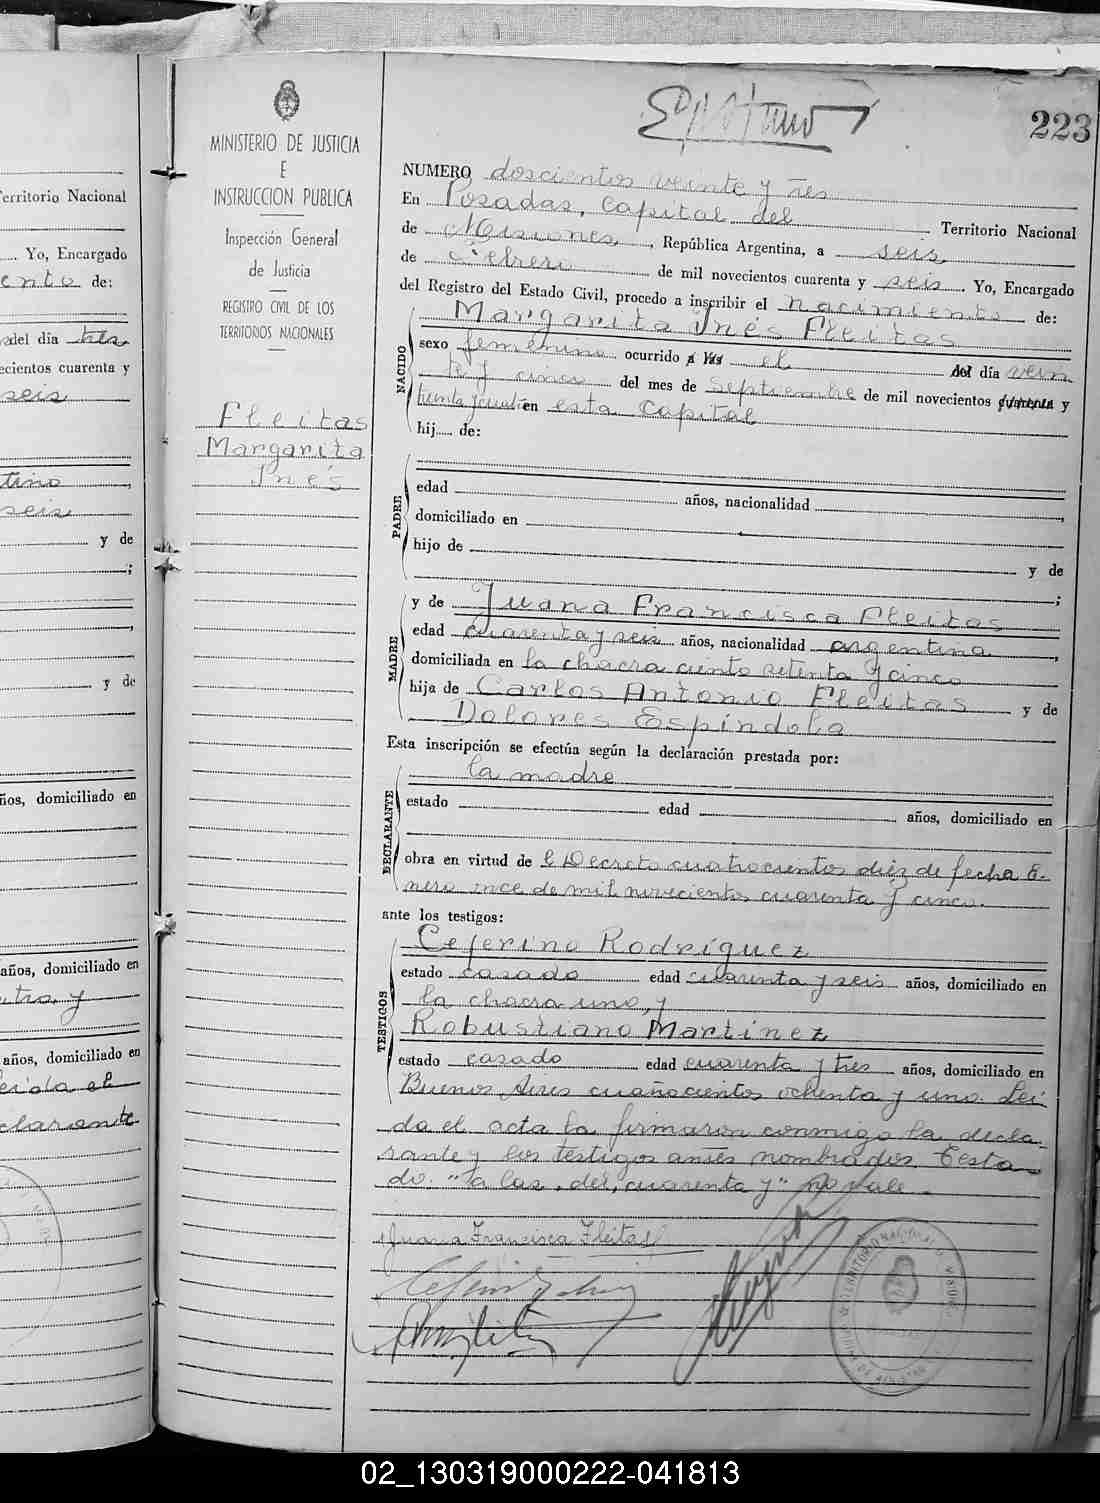 223
MINISTERIO DE JUSTICIA
E
INSTRUCCION PUBLICA
Inspección General
de Justicia
REGISTRO CIVIL DE LOS
TERRITORIOS NACIONALES
Fleitas
Margarita
Inés
NUMERO doscientos veinte y tres
En Posadas, Capital del Territorio Nacional
de Misiones, República Argentina, a seis
de Febrero de mil novecientos cuarenta y seis. Yo, Encargado
del Registro del Estado Civil, procedo a inscribir el nacimiento de:
Margarita Inés Fleitas
NACIDO
sexo femenino ocurrido a las el del día vein
te y cinco del mes de Septiembre de mil novecientos cuarenta y
treinta y cuatro en esta Capital
hij.... de:
PADRE
edad años, nacionalidad ;
domiciliado en
hijo de y de
;
MADRE
y de Juana Francisca Fleitas
edad cuarenta y seis años, nacionalidad argentina,
domiciliada en la chacra ciento setenta y cinco
hija de Carlos Antonio Fleitas y de
Dolores Espíndola
Esta inscripción se efectúa según la declaración prestada por:
DECLARANTE
la madre
estado edad años, domiciliado en
obra en virtud de el Decreto cuatrocientos diez de fecha E-
nero once de mil novecientos cuarenta y cinco.
ante los testigos:
TESTIGOS
Ceferino Rodríguez
estado casado edad cuarenta y seis años, domiciliado en
la chacra uno, y
Robustiano Martínez
estado casado edad cuarenta y tres años, domiciliado en
Buenos Aires cuatrocientos ochenta y uno. Leí-
da el acta la firmaron conmigo la decla-
rante y los testigos antes nombrados. Testa-
do: "a las, del, cuarenta y" no vale.
Juana Francisca Fleitas
Territorio Nacional
. Yo, Encargado
ento de:
del día tres
ecientos cuarenta y
seis
tino,
seis
y de
;
,
y de
ños, domiciliado en
años, domiciliado en
tro y
años, domiciliado en
eida el
clarante
02_130319000222-041813